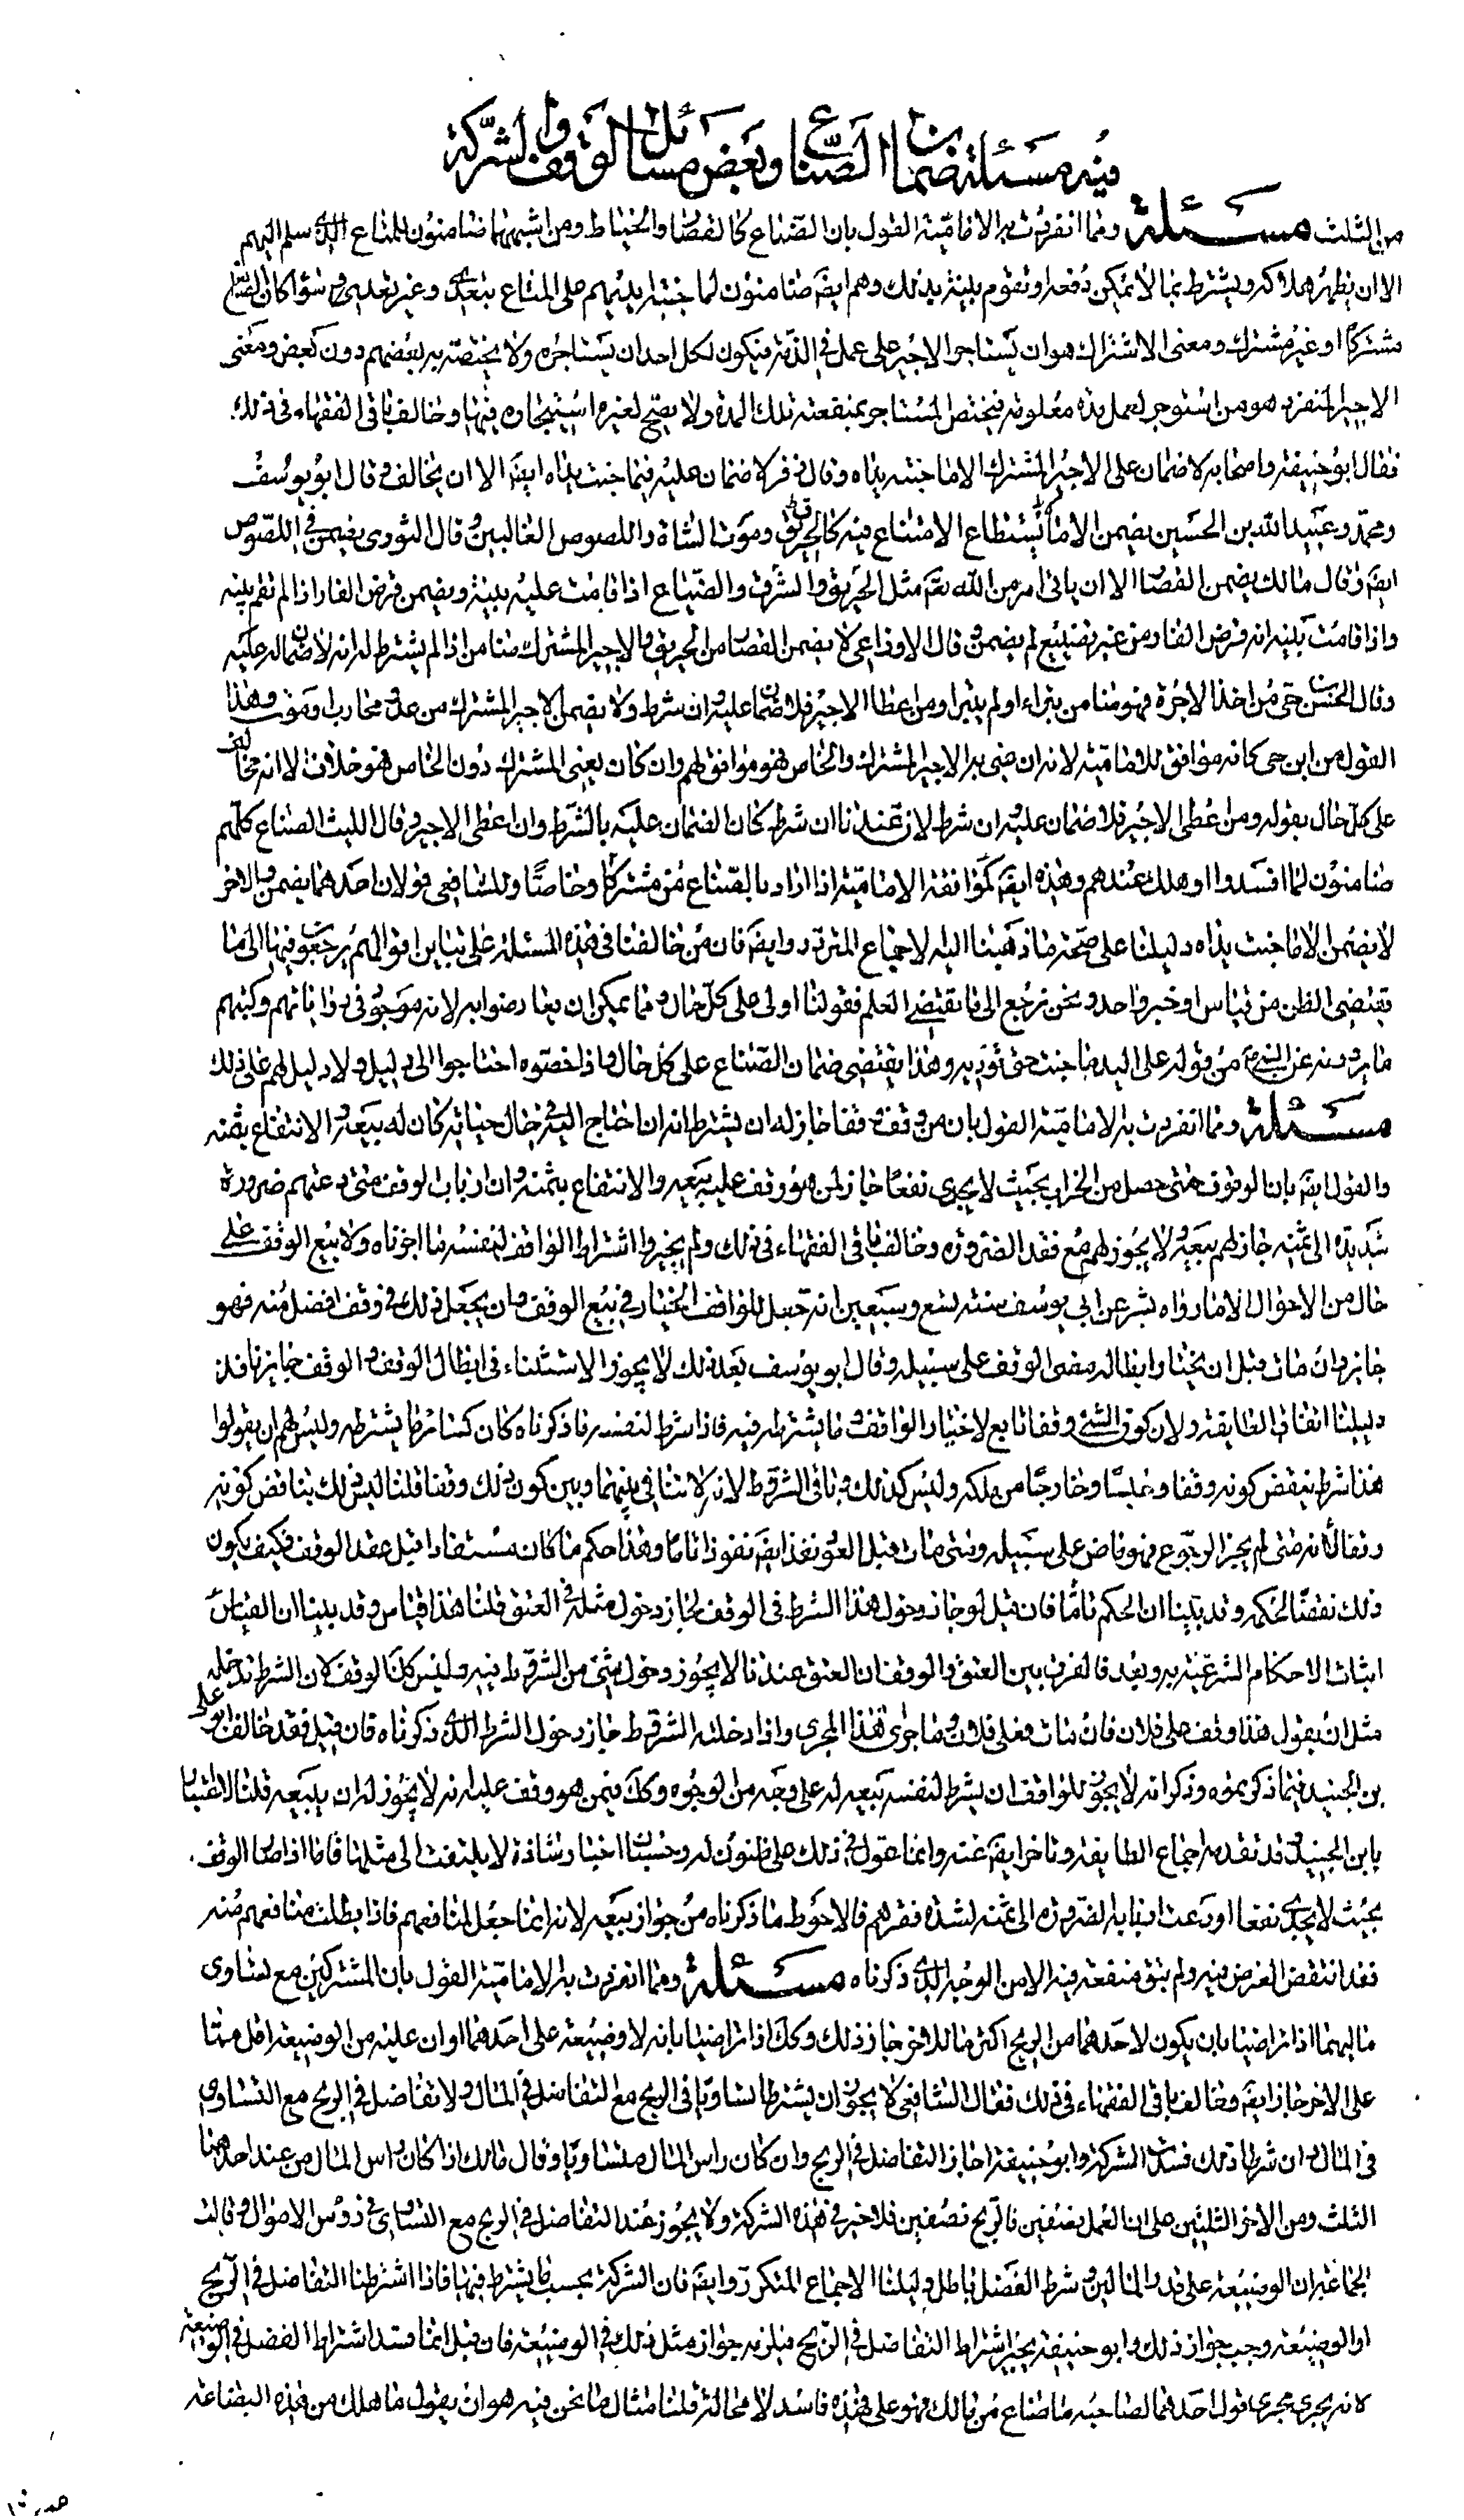 فيه مسئلة ضمان الصناع وبعض مسائل الوقف والشركة
من الثلث مسئلة ومما انفردت به الامامية القول بان الصناع كالقصار والخياط ومن اشبههما ضامنون للمتاع الذى سلم اليهم
الا ان يظهر هلاكه ويشتهر بما لا يمكن دفعه او تقوم بينة بذلك وهم ايضا ضامنون لما جنته ايديهم على المتاع بتعدى وغير تعدى وسواء كان الصانع
مشتركا او غير مشترك ومعنى الاشتراك هو ان يستاجر الاجير على عمل فى الذمة فيكون لكل احد ان يستاجره ولا يختص به بعضهم دون بعض ومعنى
الاجير المنفرد هو من استوجر لعمل مدة معلومة فيختص المستاجر بمنفعته تلك المدة ولا يصح لغيره استيجاره فيها وخالف باقى الفقهاء فى ذلك
فقال ابو حنيفة واصحابه لا ضمان على الاجير المشترك الا ما جنته يداه وقال زفر لا ضمان عليه فيما جنت يداه ايضا الا ان يخالف وقال ابو يوسف
ومحمد وعبيد الله بن الحسين يضمن الا ما لا يستطاع الامتناع فيه كالحريق وموت الشاة واللصوص الغالبين وقال الثورى يضمن فى اللصوص
ايضا وقال مالك يضمن القصار الا ان ياتى امر من الله تعالى مثل الحريق والسرق والضياع اذا قامت عليه بينة ويضمن قرض الفار اذا لم تقم بينة
واذا قامت بينة انه قرض الفار من غير تضييع لم يضمن وقال الاوزاعى لا يضمن القصار من الحريق والاجير المشترك ضامن اذا لم يشترط له انه لا ضمان عليه
وقال الحسن بن حى من اخذ الاجرة فهو ضامن تبرا او لم يتبرا ومن اعطى الاجر فلا ضمان عليه وان شرط ولا يضمن الاجير المشترك من عدو محارب او موت وهذا
القول من ابن حى كانه موافق للامامية لانه ان عنى به الاجير المشترك والخاص فهو موافق لهم وان كان يعنى المشترك دون الخاص فهو خلاف الا انه مخالف
على كل حال بقوله ومن اعطى الاجير فلا ضمان عليه ان شرط لان عندنا ان شرط كان الضمان عليه بالشرط وان اعطى الاجير وقال الليث الصناع كلهم
ضامنون لما افسدوا او هلك عندهم وهذه ايضا كموافقة الامامية اذا اراد بالصناع من مشتركا وخاصا وللشافعى قولان احدهما يضمن والاخر
لا يضمن الا ما جنت يداه دليلنا على صحة ما ذهبنا اليه الاجماع المتردد وايضا فان من خالفنا فى هذه المسئلة على تباين اقوالهم يرجعون فيها الى ما
يقتضى الظن من قياس او خبر واحد ونحن نرجع الى ما يقتضى العلم فقولنا اولى على كل حال ومما يمكن ان يعارضوا به لانه موجود فى رواياتهم وكتبهم
ما يروونه عن النبى من قوله على اليد ما جنت حتى تؤديه وهذا يقتضى ضمان الصناع على كل حال واذا خصوه احتاجوا الى دليل ولا دليل لهم على ذلك
مسئلة ومما انفردت به الامامية القول بان من وقف وقفا جاز له ان يشترط انه ان احتاج اليه فى حال حياته كان له بيعه والانتفاع بثمنه
والقول ايضا بان الوقوف متى حصل من الخراب بحيث لا يجدى نفعا جاز لمن هو وقف عليه بيعه والانتفاع بثمنه وان ارباب الوقف متى دعتهم ضرورة
شديدة الى ثمنه جاز لهم بيعه ولا يجوز لهم مع فقد الضرورة وخالف باقى الفقهاء فى ذلك ولم يجيزوا اشتراط الواقف لنفسه ما اجزناه ولا بيع الوقف على
حال من الاحوال الا ما رواه بشر عن ابى يوسف سنة تسع وسبعين انه جعل للواقف الخيار فى بيع الوقف وان يجعل ذلك فى وقف افضل منه فهو
جايز وان مات قبل ان يختار ابطاله مضى الوقف على سبيله وقال ابو يوسف بعد ذلك لا يجوز الاستثناء فى ابطال الوقف والوقف جايز نافذ
دليلنا اتفاق الطايفة ولان كون الشئ وقفا تابع لاختيار الواقف وما يشترطه فيه فاذا شرط لنفسه ما ذكرناه كان كسائر ما يشترطه وليس لهم ان يقولوا
هذا شرط ينقض كونه وقفا وحبسا وخارجا من ملكه وليس كذلك باقى الشروط لانه لا تنافى بينهما وبين كون ذلك وقفا قلنا ليس ذلك يناقض كونه
وقفا لانه متى لم يختر الرجوع فهو ماض على سبيله ومتى مات قبل العود نفذ ايضا نفوذا تاما وهذا حكم ما كان مستفادا قبل عقد الوقف فكيف يكون
ذلك نقضا لحكمه وقد بينا ان الحكم تاما فان قيل لو جاز دخول هذا الشرط فى الوقف لجاز دخول مثله فى العتق قلنا هذا قياس وقد بينا ان القياس
اثبات الاحكام الشرعية به وبعد فالفرق بين العتق والوقف ان العتق عندنا لا يجوز دخول شئ من الشروط فيه وليس كك الوقف لان الشرط تدخله
مثل ان يقول هذا وقف على فلان فان مات فعلى فلان وما جرى هذا المجرى واذا دخلته الشروط جاز دخول الشرط الذى ذكرناه فان قيل فقد خالف ابو على
بن الجنيد فيما ذكرتموه وذكر انه لا يجوز للواقف ان يشرط لنفسه بيعه له على وجه من الوجوه وكك فيمن هو وقف عليه انه لا يجوز له ان يبيعه قلنا لا اعتبار
بابن الجنيد وقد تقدمه اجماع الطايفة وتاخر ايضا عنه وانما عول فى ذلك على ظنون له وحسبان واخبار شاذة لا يلتفت الى مثلها فاما اذا صار الوقف
بحيث لا يجدى نفعا او دعت اربابه الضرورة الى ثمنه لشدة فقرهم فالاحوط ما ذكرناه من جواز بيعه لانه انما جعل لمنافعهم فاذا بطلت منافعهم منه
فقد انتقض الغرض فيه ولم يبق منفعة فيه الا من الوجه الذى ذكرناه مسئلة ومما انفردت به الامامية القول بان المشتركين مع تساوى
ماليهما اذا تراضيا بان يكون لاحدهما من الربح اكثر مما للاخر جاز ذلك وكك اذا تراضيا بانه لا وضيعة على احدهما او ان عليه من الوضيعة اقل مما
على الاخر جاز ايضا وخالف باقى الفقهاء فى ذلك فقال الشافعى لا يجوز ان يشترطا تساويا فى الربح مع التفاضل فى المال ولا تفاضل فى الربح مع التساوى
فى المال وان شرطا ذلك فسدت الشركة وابو حنيفة اجاز التفاضل فى الربح وان كان راس المال متساويا وقال مالك اذا كان راس المال من عند احدهما
الثلث ومن الاخر الثلثين على ان العمل نصفين والربح نصفين فلا خير فى هذه الشركة ولا يجوز عنده التفاضل فى الربح مع التساوى فى رؤس الاموال وقالت
الجماعة ان الوضيعة على قدر المالين وشرط الفضل باطل دليلنا الاجماع المتكرر وايضا فان الشركة بحسب ما يشترط فيها فاذا اشترطنا التفاضل فى الربح
او الوضيعة وجب جواز ذلك وابو حنيفة يجيز اشتراط التفاضل فى الربح فيلزمه جواز مثل ذلك فى الوضيعة فان قيل انما فسد اشتراط الفضل فى الوضيعة
لانه يجرى مجرى قول احدهما لصاحبه ما ضاع من مالك فهو على وهذه فاسد لا محالة قلنا مثال ما نحن فيه هو ان يقول ما هلك من هذه البضاعة